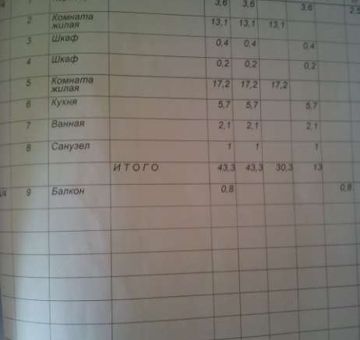 1 3,6 3,6 3,6 2,5
2 Комната жилая 13,1 13,1 13,1
3 Шкаф 0,4 0,4 0,4
4 Шкаф 0,2 0,2 0,2
5 Комната жилая 17,2 17,2 17,2
6 Кухня 5,7 5,7 5,7
7 Ванная 2,1 2,1 2,1
8 Санузел 1 1 1
ИТОГО 43,3 43,3 30,3 13
9 Балкон 0,8 0,8